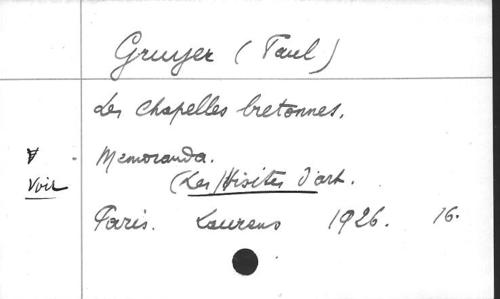 Gruyer (Paul)
Les Chapelles bretonnes.
Memoranda.
Voir
(Les Visites d'art.
Paris. Laurens 1926. 16.